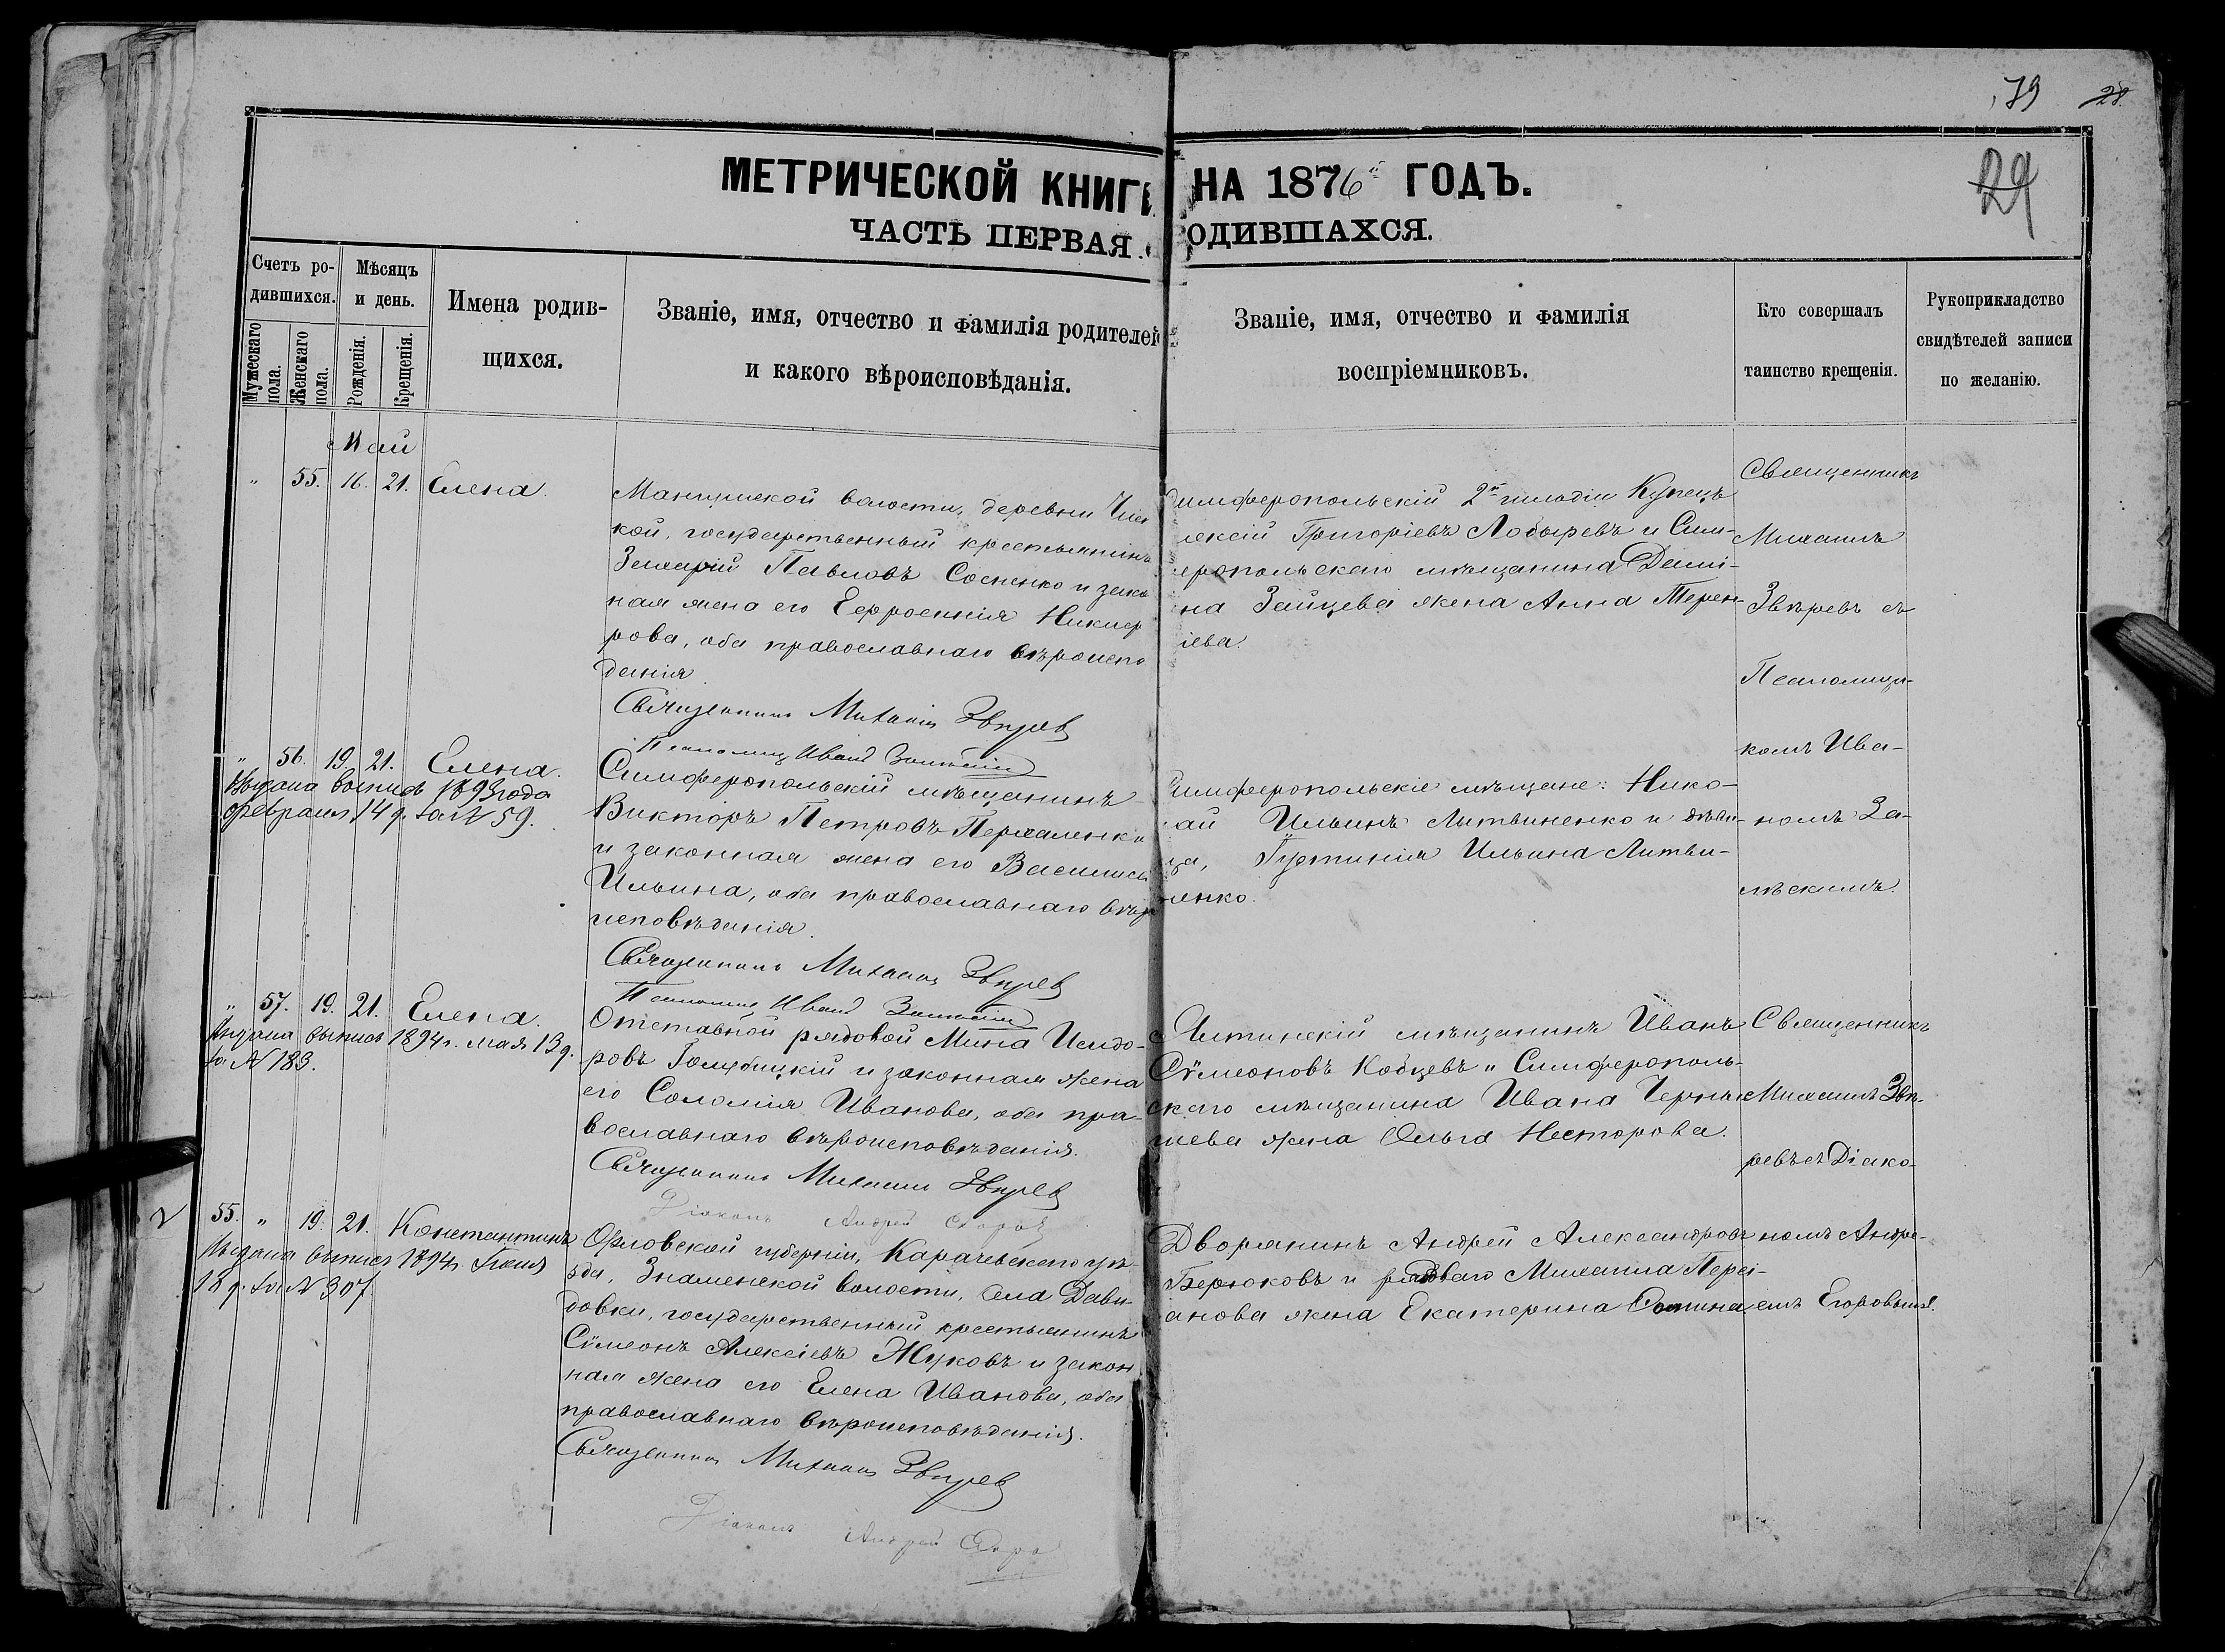 79 28.
29
МЕТРИЧЕСКОЙ КНИГИ НА 1876й ГОДЪ.
ЧАСТЬ ПЕРВАЯ. О РОДИВШАХСЯ.
Счетъ ро-
дившихся.
Мужескаго пола.
Женскаго пола.
Мѣсяцъ
и день.
Рожденія.
Крещенія.
Имена родив-
щихся.
Званіе, имя, отчество и фамилія родителей
и какого вѣроисповѣданія.
Званіе, имя, отчество и фамилія
воспріемниковъ.
Кто совершалъ
таинство крещенія.
Рукоприкладство
свидѣтелей записи
по желанію.
Май
" 55. 16. 21. Елена.
Мангушской волости, деревни
кой, государственный крестьянинъ
Павловъ Сосненко и зако
ная жена его Евфросинія Никиф
рова, оба православнаго вѣроиспо
данія.
Священникъ Михаилъ Звѣрев
Псаломщ Иванъ
имферопольскій 2й гильдіи Купецъ
лексій Григоріевъ Лобыревъ и Сим-
феропольскаго мѣщанина Дамі-
на Зайцева жена Анна Терен-
іева.
Священникъ
Михаилъ
Звѣревъ съ
Псаломщи-
комъ Ива-
номъ За-
мѣскимъ.
" 56. 19. 21. Елена.
Выдана выпись 1893 года
февраля 14 д. за № 59.
Симферопольскій мѣщанинъ
Викторъ Петровъ Пархаленко
и законная жена его Василиса
Ильина, оба православнаго вѣро
исповѣданія.
Священникъ Михаилъ Звѣрев
Псаломщ Иванъ
Симферопольскіе мѣщане: Нико-
лай Ильинъ Литвиненко и дѣви-
ца, Іустинія Ильина Литви-
ненко.
" 57. 19. 21. Елена.
Выдана выпись 1894 г. мая 13 д.
за № 183.
Отставной рядовой Мина Исидо-
ровъ Голубицкій и законная жена
его Соломія Иванова, оба пра-
вославнаго вѣроисповѣданія.
Священникъ Михаилъ Звѣрев
Діаконъ Андрей
Ялтинскій мѣщанинъ Иванъ
Сѵмеоновъ Кобцевъ и Симферополь-
скаго мѣщанина Ивана Черны
шева жена Ольга Несторова.
Священникъ
Михаилъ Звѣ-
ревъ съ Діако-
номъ Андре-
емъ Егоровымъ.
55. " 19. 21. Константинъ
Выдана выпись 1894 г. Іюля
18 д. за № 307
Орловской губерніи, Карачевскаго уѣ-
зда, Знаменской волости, села Давы-
довки, государственный крестьянинъ
Сѵмеонъ Алексіевъ Жуковъ и закон
ная жена его Елена Иванова, оба
православнаго вѣроисповѣданія.
Священникъ Михаилъ Звѣрев
Діаконъ Андрей
Дворянинъ Андрей Александровъ
Бирюковъ и рядоваго Михаила Перес-
анова жена Екатерина Фомина